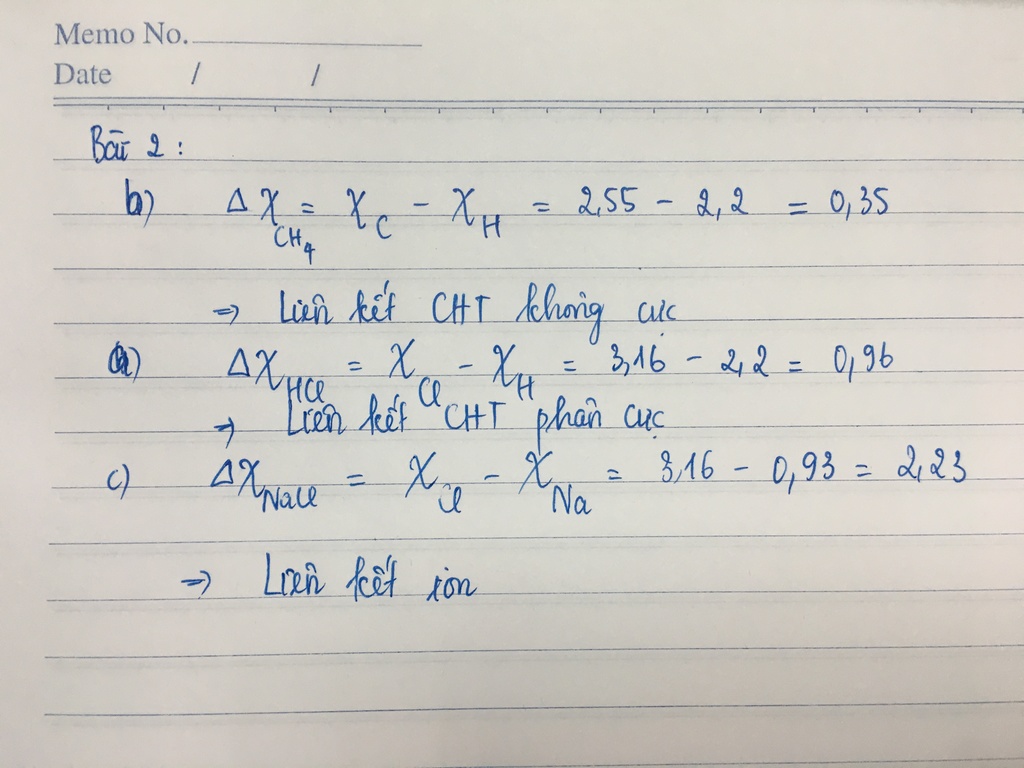 Memo No.
Date / /
Bài 2 :
b) Δχ CH₄ = χ C - χ H = 2,55 - 2,2 = 0,35
⇒ Liên kết CHT không cực
a) Δχ HCl = χ Cl - χ H = 3,16 - 2,2 = 0,96
⇒ Liên kết CHT phân cực
c) Δχ NaCl = χ Cl - χ Na = 3,16 - 0,93 = 2,23
⇒ Liên kết ion